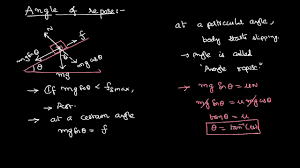 Angle of repose:-
N
f
mg sinθ
θ
mg cosθ
θ
mg
→ If mg sinθ < fsmax,
→ at a certain angle
mg sinθ = f
at a particular angle,
body starts slipping.
→ angle is called
"Angle repose"
→ mg sinθ = μN
mg sinθ = μ mg cosθ
tanθ = μ
θ = tan⁻¹(μ)